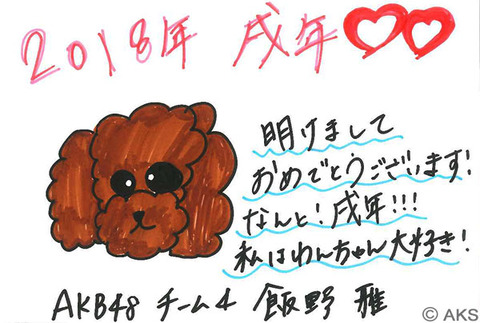 2018年 戌年
明けまして
おめでとうございます!
なんと!戌年!!!
私はわんちゃん大好き!
AKB48 チーム4 飯野 雅
© AKS